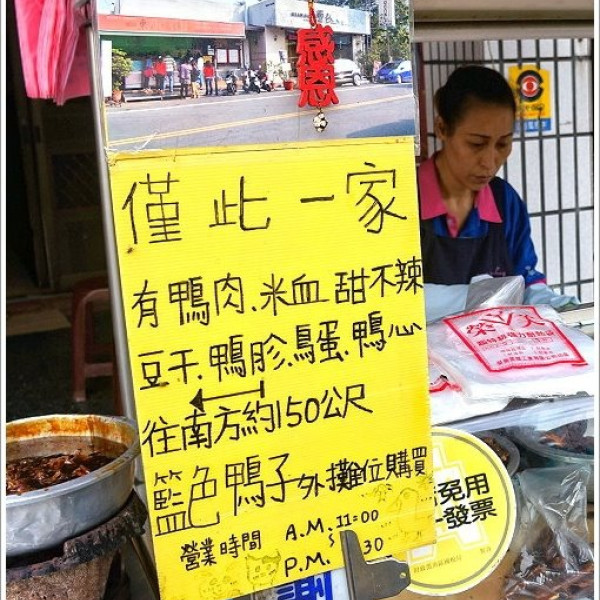 感恩
僅此一家
有鴨肉.米血 甜不辣
豆干.鴨胗.鳥蛋.鴨心
往南方約150公尺
籃色鴨子外攤位購買
營業時間 A.M. 11=00
P.M. 30
免用
發票
謝